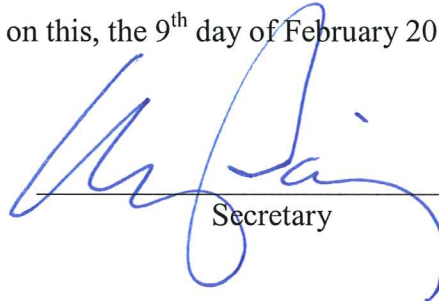 on this, the 9th day of February 20
Secretary